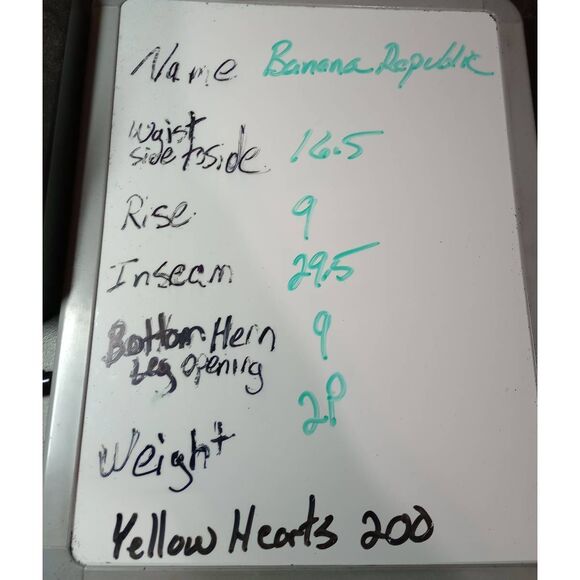 Name Banana Republic
Waist
side to side 16.5
Rise 9
Inseam 29.5
Bottom Hem 9
Leg opening
2P
Weight
Yellow Hearts 200